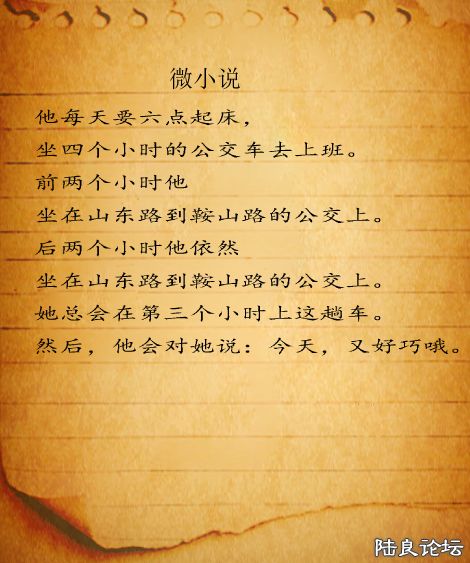 微小说
他每天要六点起床，
坐四个小时的公交车去上班。
前两个小时他
坐在山东路到鞍山路的公交上。
后两个小时他依然
坐在山东路到鞍山路的公交上。
她总会在第三个小时上这趟车。
然后，他会对她说：今天，又好巧哦。
陆良论坛